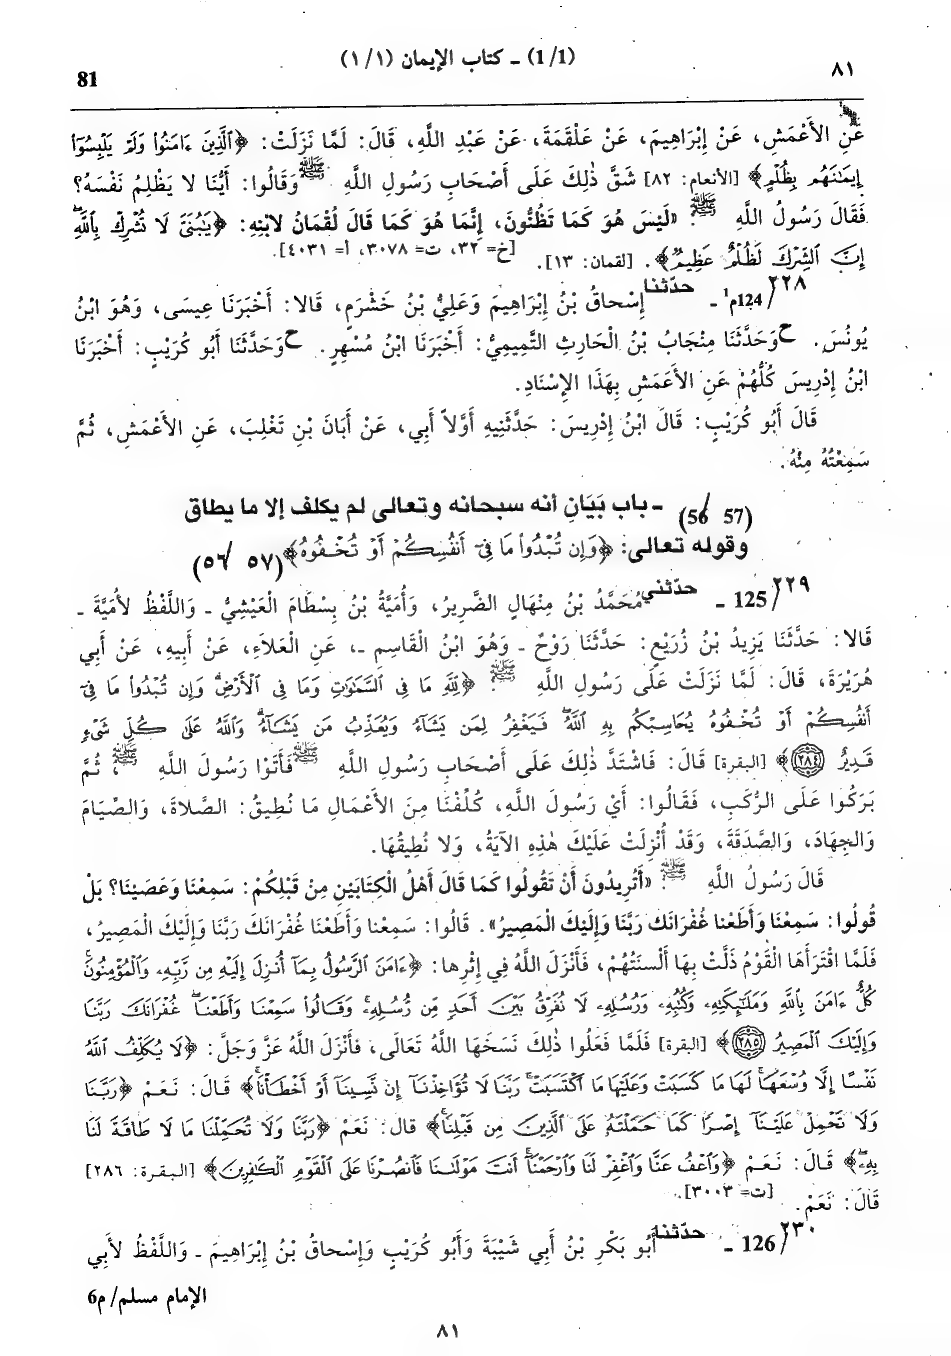 ٨١ (1/1) ـ كتاب الإيمان (١/١) 81
عَنِ الأَعْمَشِ، عَنْ إِبْرَاهِيمَ، عَنْ عَلْقَمَةَ، عَنْ عَبْدِ اللَّهِ، قَالَ: لَمَّا نَزَلَتْ: ﴿ٱلَّذِينَ ءَامَنُوا۟ وَلَمْ يَلْبِسُوٓا۟
إِيمَٰنَهُم بِظُلْمٍ﴾ [الأنعام: ٨٢] شَقَّ ذٰلِكَ عَلَى أَصْحَابِ رَسُولِ اللَّهِ ﷺ وَقَالُوا: أَيُّنَا لا يَظْلِمُ نَفْسَهُ؟
فَقَالَ رَسُولُ اللَّهِ ﷺ: «لَيْسَ هُوَ كَمَا تَظُنُّونَ، إِنَّمَا هُوَ كَمَا قَالَ لُقْمَانُ لابْنِهِ: ﴿يَٰبُنَىَّ لَا تُشْرِكْ بِٱللَّهِ
إِنَّ ٱلشِّرْكَ لَظُلْمٌ عَظِيمٌ﴾. [لقمان: ١٣]. [خ= ٣٢، ت= ٣٠٧٨، أ= ٤٠٣١].
٢٢٨/124م¹ ـ حدّثنا إِسْحاقُ بْنُ إِبْرَاهِيمَ وَعَلِيُّ بْنُ خَشْرَمٍ، قَالا: أَخْبَرَنَا عِيسَى، وَهُوَ ابْنُ
يُونُسَ. ح وَحَدَّثَنَا مِنْجَابُ بْنُ الْحَارِثِ التَّمِيمِيُّ: أَخْبَرَنَا ابْنُ مُسْهِرٍ. ح وَحَدَّثَنَا أَبُو كُرَيْبٍ: أَخْبَرَنَا
ابْنُ إِدْرِيسَ كُلُّهُمْ عَنِ الأَعْمَشِ بِهَذَا الإِسْنَادِ.
قَالَ أَبُو كُرَيْبٍ: قَالَ ابْنُ إِدْرِيسَ: حَدَّثَنِيهِ أَوَّلاً أَبِي، عَنْ أَبَانَ بْنِ تَغْلِبَ، عَنِ الأَعْمَشِ، ثُمَّ
سَمِعْتُهُ مِنْهُ.
(57 /56) ـ باب بَيَانِ أنه سبحانه وتعالى لم يكلف إلا ما يطاق
وقوله تعالى: ﴿وَإِن تُبْدُوا۟ مَا فِىٓ أَنفُسِكُمْ أَوْ تُخْفُوهُ﴾ (٥٧ /٥٦)
٢٢٩/125 ـ حدّثني مُحَمَّدُ بْنُ مِنْهَالٍ الضَّرِيرُ، وَأُمَيَّةُ بْنُ بِسْطَامَ الْعَيْشِيُّ ـ وَاللَّفْظُ لأُمَيَّةَ ـ
قَالا: حَدَّثَنَا يَزِيدُ بْنُ زُرَيْعٍ: حَدَّثَنَا رَوْحٌ ـ وَهُوَ ابْنُ الْقَاسِمِ ـ، عَنِ الْعَلاَءِ، عَنْ أَبِيهِ، عَنْ أَبِي
هُرَيْرَةَ، قَالَ: لَمَّا نَزَلَتْ عَلَى رَسُولِ اللَّهِ ﷺ: ﴿لِّلَّهِ مَا فِى ٱلسَّمَٰوَٰتِ وَمَا فِى ٱلْأَرْضِ وَإِن تُبْدُوا۟ مَا فِىٓ
أَنفُسِكُمْ أَوْ تُخْفُوهُ يُحَاسِبْكُم بِهِ ٱللَّهُ فَيَغْفِرُ لِمَن يَشَآءُ وَيُعَذِّبُ مَن يَشَآءُ وَٱللَّهُ عَلَىٰ كُلِّ شَىْءٍ
قَدِيرٌ ٢٨٤﴾ [البقرة] قَالَ: فَاشْتَدَّ ذٰلِكَ عَلَى أَصْحَابِ رَسُولِ اللَّهِ ﷺ فَأَتَوْا رَسُولَ اللَّهِ ﷺ، ثُمَّ
بَرَكُوا عَلَى الرُّكَبِ، فَقَالُوا: أَيْ رَسُولَ اللَّهِ، كُلِّفْنَا مِنَ الأَعْمَالِ مَا نُطِيقُ: الصَّلاةَ، وَالصِّيَامَ
وَالجِهَادَ، وَالصَّدَقَةَ، وَقَدْ أُنْزِلَتْ عَلَيْكَ هٰذِهِ الآيَةُ، وَلا نُطِيقُهَا.
قَالَ رَسُولُ اللَّهِ ﷺ: «أَتُرِيدُونَ أَنْ تَقُولُوا كَمَا قَالَ أَهْلُ الْكِتَابَيْنِ مِنْ قَبْلِكُمْ: سَمِعْنَا وَعَصَيْنَا؟ بَلْ
قُولُوا: سَمِعْنَا وَأَطَعْنَا غُفْرَانَكَ رَبَّنَا وَإِلَيْكَ الْمَصِيرُ». قَالُوا: سَمِعْنا وَأَطَعْنَا غُفْرَانَكَ رَبَّنَا وَإِلَيْكَ الْمَصِيرُ،
فَلَمَّا اقْتَرَأَهَا الْقَوْمُ ذَلَّتْ بِهَا أَلْسِنَتُهُمْ، فَأَنْزَلَ اللَّهُ فِي إِثْرِها: ﴿ءَامَنَ ٱلرَّسُولُ بِمَآ أُنزِلَ إِلَيْهِ مِن رَّبِّهِۦ وَٱلْمُؤْمِنُونَ
كُلٌّ ءَامَنَ بِٱللَّهِ وَمَلَٰٓئِكَتِهِۦ وَكُتُبِهِۦ وَرُسُلِهِۦ لَا نُفَرِّقُ بَيْنَ أَحَدٍ مِّن رُّسُلِهِۦ وَقَالُوا۟ سَمِعْنَا وَأَطَعْنَا غُفْرَانَكَ رَبَّنَا
وَإِلَيْكَ ٱلْمَصِيرُ ٢٨٥﴾ [البقرة] فَلَمَّا فَعَلُوا ذٰلِكَ نَسَخَهَا اللَّهُ تَعَالَى، فَأَنْزَلَ اللَّهُ عَزَّ وَجَلَّ: ﴿لَا يُكَلِّفُ ٱللَّهُ
نَفْسًا إِلَّا وُسْعَهَا لَهَا مَا كَسَبَتْ وَعَلَيْهَا مَا ٱكْتَسَبَتْ رَبَّنَا لَا تُؤَاخِذْنَآ إِن نَّسِينَآ أَوْ أَخْطَأْنَا﴾ قَالَ: نَعَمْ ﴿رَبَّنَا
وَلَا تَحْمِلْ عَلَيْنَآ إِصْرًا كَمَا حَمَلْتَهُۥ عَلَى ٱلَّذِينَ مِن قَبْلِنَا﴾ قال: نَعَمْ ﴿رَبَّنَا وَلَا تُحَمِّلْنَا مَا لَا طَاقَةَ لَنَا
بِهِۦ﴾ قَالَ: نَعَمْ ﴿وَٱعْفُ عَنَّا وَٱغْفِرْ لَنَا وَٱرْحَمْنَآ أَنتَ مَوْلَىٰنَا فَٱنصُرْنَا عَلَى ٱلْقَوْمِ ٱلْكَٰفِرِينَ﴾ [البقرة: ٢٨٦]
قَالَ: نَعَمْ. [ت= ٣٠٠٣].
٢٣٠/126 ـ حدّثنا أَبُو بَكْرِ بْنُ أَبِي شَيْبَةَ وَأَبُو كُرَيْبٍ وَإِسْحاقُ بْنُ إِبْرَاهِيمَ ـ وَاللَّفْظُ لأَبِي
الإمام مسلم/م6
٨١